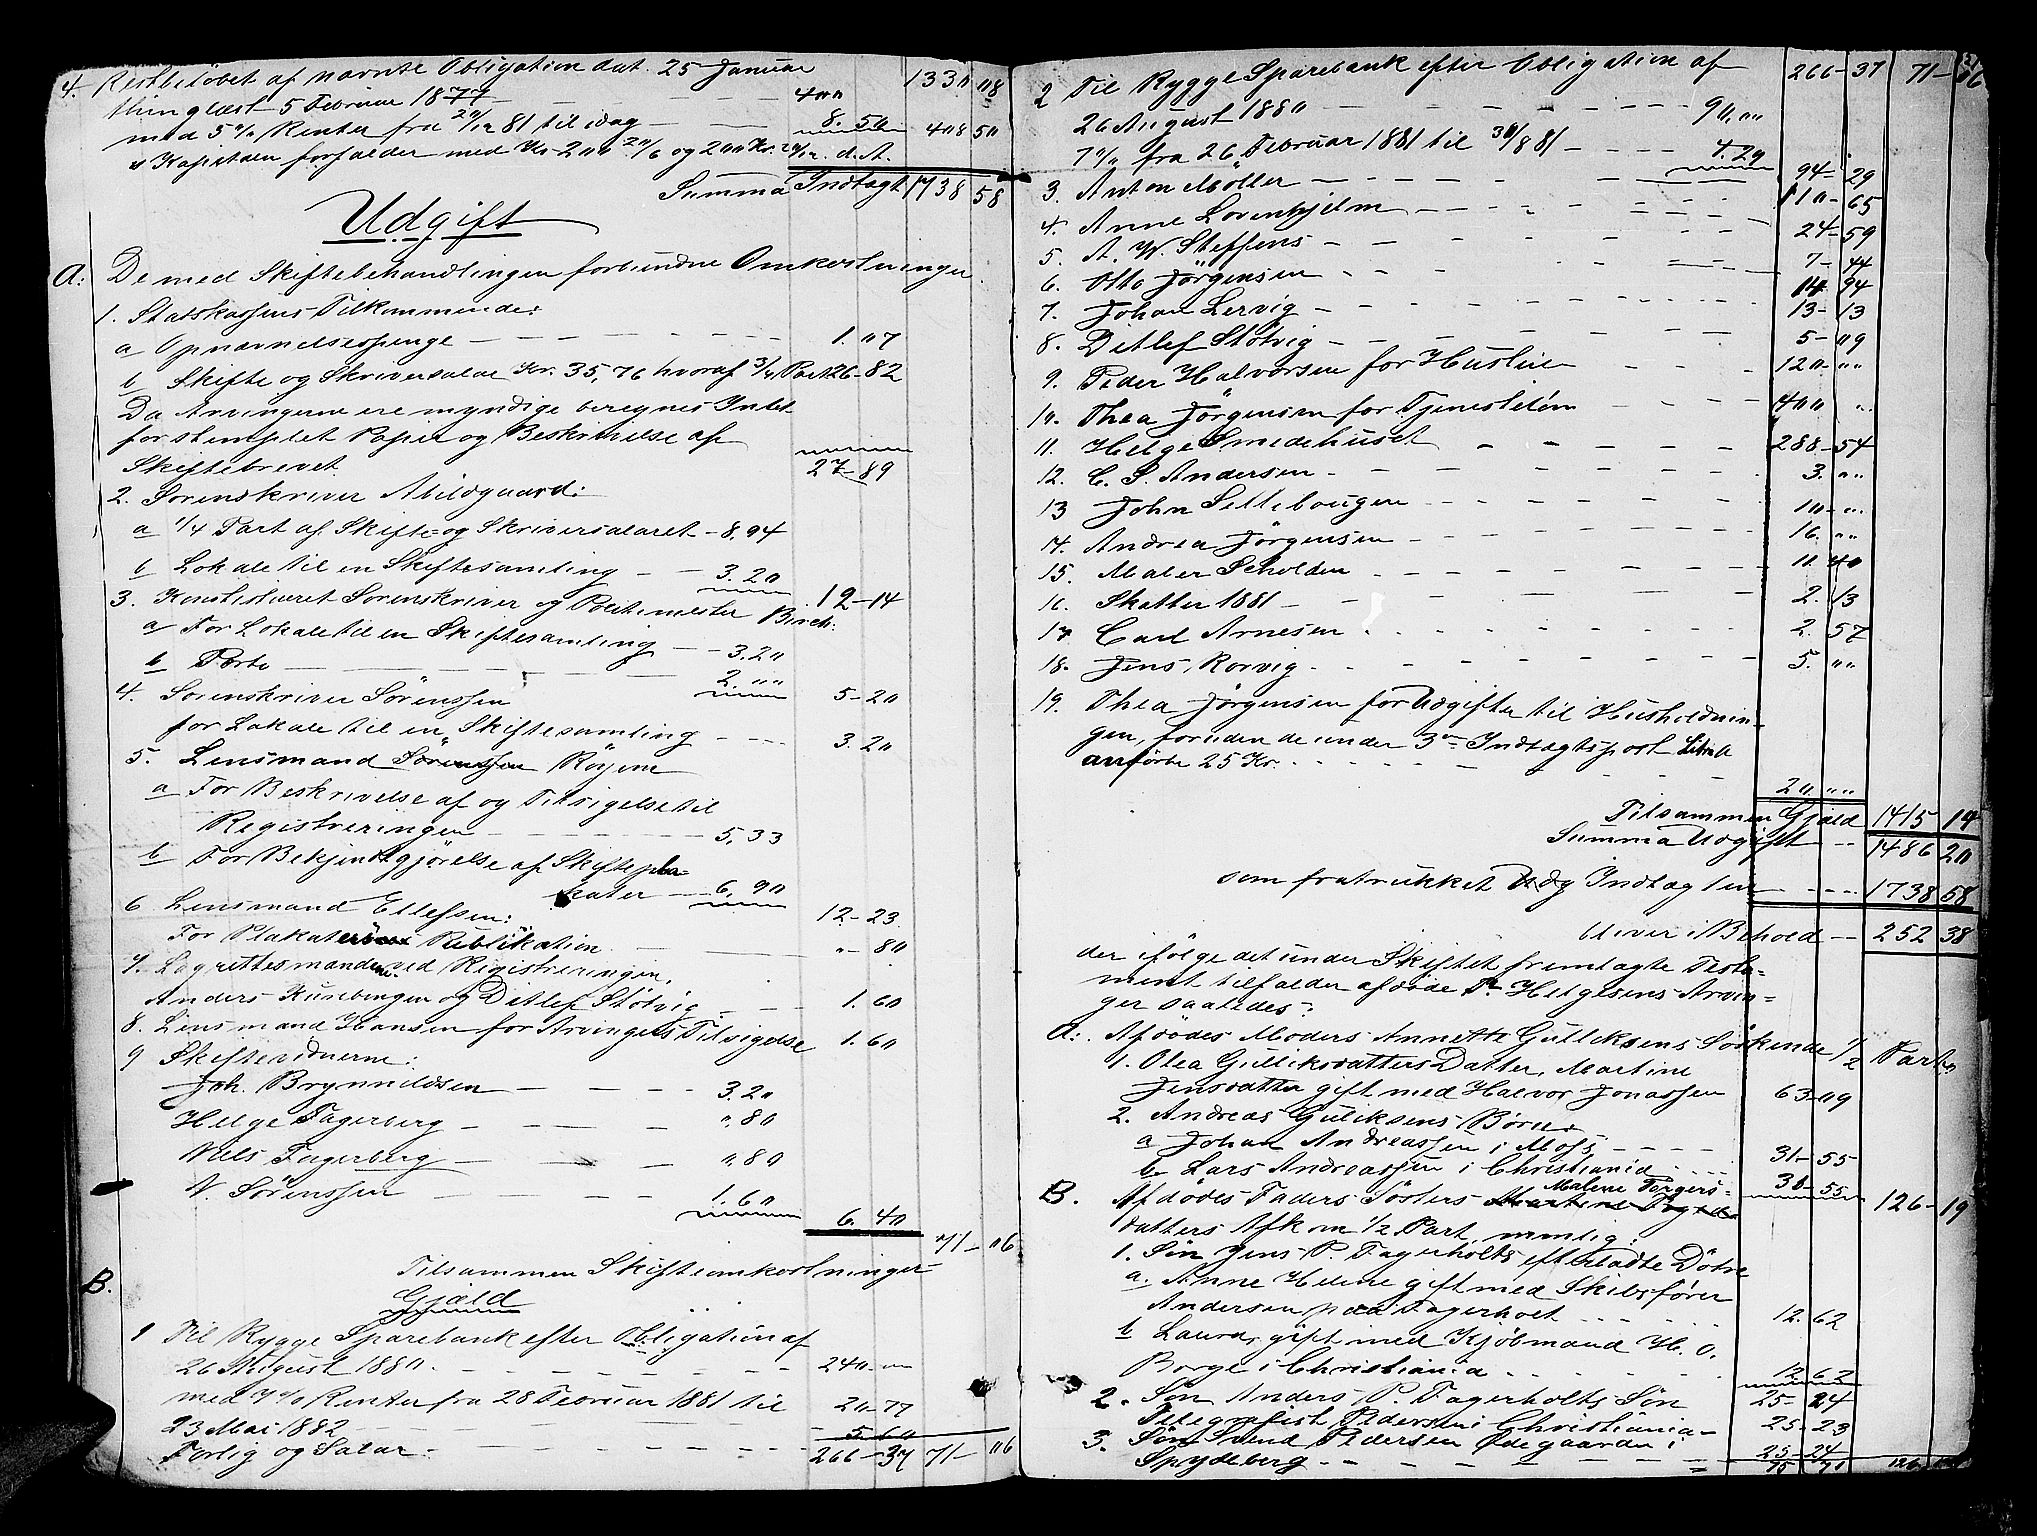 4. Restbeløbet af nævnte Obligation dat. 25 Januar 1330 08
thinglæst 5 Februar 1877 — — — 400
med 5 % Renter fra 20/12 81 til idag — — 8. 50 408 50
Kapitalen forfalder med Kr 200 20/6 og 200 Kr. 20/12 d. A.
Summa Indtægt 1738 58
Udgift
A: De med Skiftebehandlingen forbundne Omkostninger
1. Statskassens Tilkommende:
a Opnævnelsespenge — — — — 1. 07
b Skifte og Skriversalar Kr. 35,76 hvoraf 3/4 Part 26-82
Da Arvingerne ere myndige beregnes Intet
for stemplet Papir og Beskrivelse af
Skiftebrevet 27-89
2. Sorenskriver Abildgaard:
a 1/4 Part af Skifte- og Skriversalaret - 8,94
b Lokale til en Skiftesamling — — 3.20
12-14
3. Konstitueret Sorenskriver og Politimester Birch:
a For Lokale til en Skiftesamling — — 3.20
b Porto — — — 2. ""
5-20
4. Sorenskriver Sörenssen
for Lokale til en Skiftesamling — — 3. 20
5. Lensmand Sörenssen Röyem
a For Beskrivelse af og Tilsigelse til
Registreringen — — — 5,33
b For Bekjendtgjörelse af Skiftepla-
kater — 6, 90
12-23
6 Lensmand Ellefsen:
For Plakaters Publikation — — "- 80
7. Lagrettesmændene ved Registreringen,
Anders Kurebingen og Ditlef Stötvig — — 1. 60
8. Lensmand Hansen for Arvingers Tilsigelse 1. 60
9 Skiftevidnerne:
Joh. Brynildsen — — — 3.20
Helge Fagerberg — — — ",80
Niels Fagerberg — — — ",80
N. Sörenssen — — — 1. 60
6. 40
71- 06
Tilsammen Skifteomkostninger
B. Gjæld
1 Til Rygge Sparebank efter Obligation af
26 August 1880 — — — 240 -
med 7 % Renter fra 28 Februar 1881 til
23 Mai 1882 — — — 20- 77
Forlig og Salar — — — 5- 60
266- 37 71- 06
2 Til Rygge Sparebank efter Obligation af 266- 37 71- 06
26 August 1880 — — — 90, ""
7 % fra 26 Februar 1881 til 30/8 81 — — — 4. 29
94- 29
3. Anton Möller — — — 110- 65
4. Anne Lovenhjelm — — — 24- 59
5. A. W. Steffens — — — 7- 44
6. Otto Jörgensen — — — 14 94
7. Johan Lervig — — — 13- 13
8. Ditlef Stötvig — — — 5- 09
9. Peder Halvorsen for Husleie — — — 120- ""
10. Thea Jörgensen for Tjenestelön — — — 400 ""
11. Helge Smedehuset — — — 288- 54
12. C. S. Andersen — — — 3. ""
13 John Sillebougen — — — 10- ""
14. Andrea Jörgensen — — — 16. ""
15. Maler Scholden — — — 11 40
16. Skatter 1881 — — — 2. 13
17 Carl Arnesen — — — 2. 57
18. Jens Rorvig — — — 5. ""
19. Thea Jörgensen for Udgifter til Husholdnin-
gen, foruden de under 3die Indtægtspost Litra a
anförte 25 Kr. — — — 20, ""
Tilsammen Gjæld 1415 14
Summa Udgift — 1486 20
som fratrukket Indtægten — 1738 58
Uiver i Behold — 252 38
der ifölge det under Skiftet fremlagte Testa-
ment tilfalder afdöde P. Helgesens Arvin-
ger saaledes:
A: Afdödes Moders Annette Gulliksens Söskende 1/2 Part,
1. Olea Gulliksdatters Datter, Martine
Jensdatter gift med Halvor Jonassen 63-09
2. Andreas Guliksens Börn:
a Johan Andreassen i Moss — — — 31- 55
b Lars Andreassen i Christiania — — 31- 55
126- 19
B. Afdödes Faders Sösters Malene Torgers-
datters Afkom 1/2 Part, nemlig:
1. Sön Jens P. Fagerholts efterladte Dötre
a. Anne Helene gift med Skibsförer
Andersen paa Fagerholt — — — 12. 62
b Laura, gift med Kjöbmand H. O.
Borge i Christiania — — — 12 62
25- 24
2. Sön Anders P. Fagerholts Sön
Telegrafist Pedersen i Christiania — 25- 23
3. Sön Svend Pedersen Ödegaarden i
Spydeberg — — — 25-24
75 71